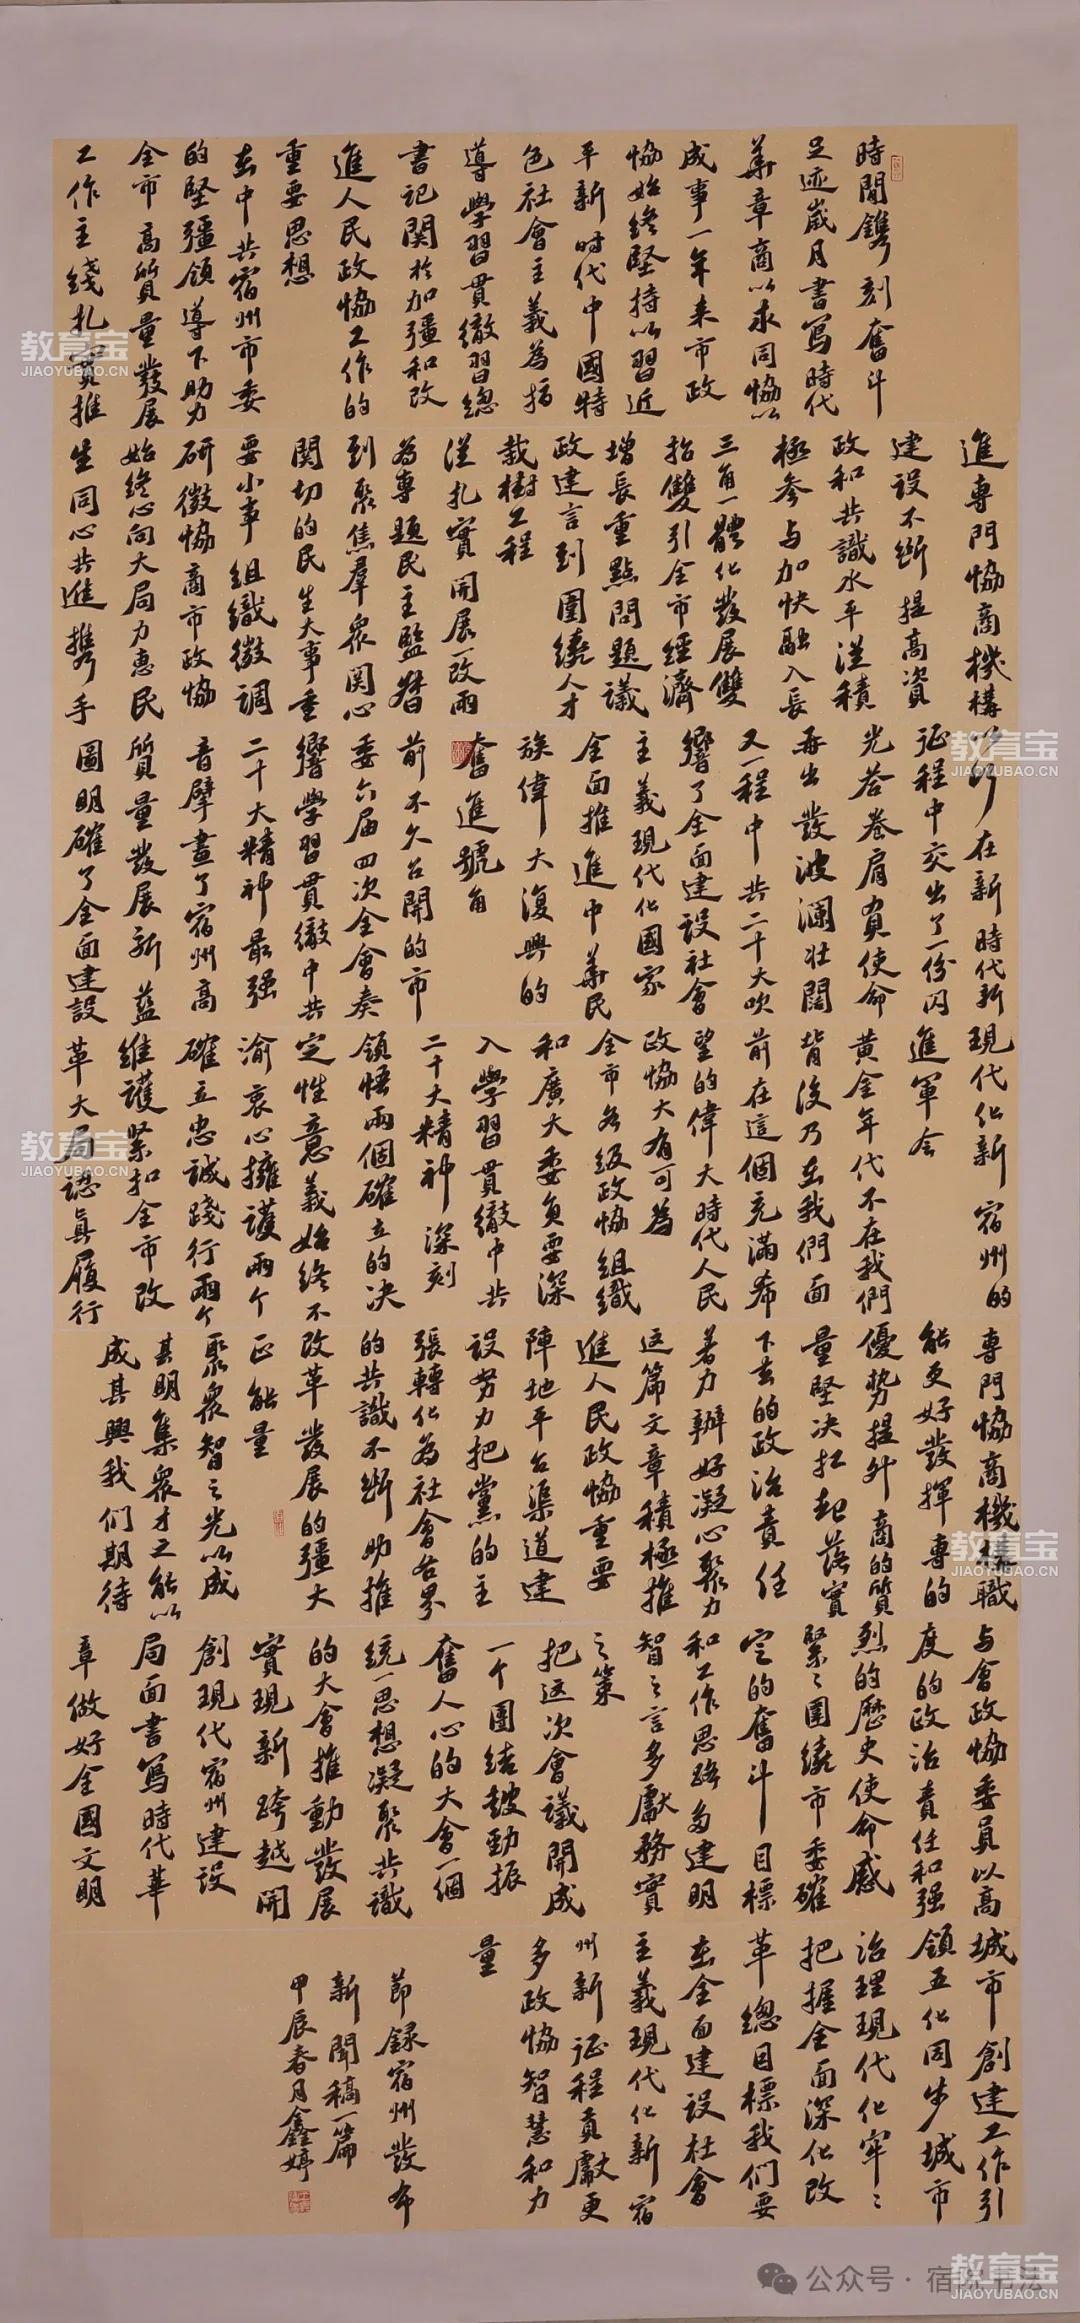 時間鐫刻奮斗
足迹歲月書寫時代
華章商以求同協以
成事一年来市政
協始終堅持以習近
平新时代中國特
色社會主義為指
導學習貫徹習總
書记関於加彊和改
進人民政協工作的
重要思想
在中共宿州市委
的堅彊領導下助力
全市高質量發展
工作主綫扎實推
進專門協商機構
建設不斷提高資
政和共識水平從積
極参与加快融入長
三角一體化發展雙
招雙引全市經濟
增長重點問題議
政建言到圍繞人才
栽樹工程
從扎實開展一改兩
為專題民主監督
到聚焦羣衆関心
関切的民生大事重
要小事組織微調
研微協商市政協
始終心向大局力惠民
生同心共進携手
在新時代新
征程中交出了一份闪
光答卷肩負使命
再出發波瀾壯闊
又一程中共二十大吹
響了全面建設社會
主義現代化國家
全面推進中華民
族偉大復興的
奮進號角
前不久召開的市
委六届四次全會奏
響學習貫徹中共
二十大精神最强
音擘畫了宿州高
質量發展新藍
圖明確了全面建設
現代化新宿州的
進軍令
黄金年代不在我們
背後乃在我們面
前在這個充滿希
望的偉大時代人民
政協大有可為
全市各级政協組織
和廣大委員要深
入學習貫徹中共
二十大精神深刻
領悟兩個確立的决
定性意義始終不
渝衷心擁護兩个
確立忠誠踐行兩个
維護緊扣全市改
革大局認真履行
專門協商機構職
能更好發揮專的
優勢提升商的質
量堅决扛起落實
下去的政治責任
著力辦好凝心聚力
这篇文章積極推
進人民政協重要
陣地平台渠道建
設努力把黨的主
張轉化為社會各界
的共識不斷助推
改革發展的彊大
正能量
聚衆智之光以成
其明集衆才之能以
成其興我们期待
与會政協委員以高
度的政治責任和强
烈的歷史使命感
緊緊圍繞市委確
定的奮斗目標
和工作思路多建明
智之言多獻務實
之策
把这次會議開成
一个團结鼓勁振
奮人心的大會一個
統一思想凝聚共識
的大會推動發展
實現新跨越開
創現代宿州建設
局面書寫時代華
章做好全國文明
城市創建工作引
領五化同步城市
治理現代化牢牢
把握全面深化改
革總目標我们要
在全面建設社會
主義現代化新宿
州新征程貢獻更
多政協智慧和力
量
節録宿州發布
新聞稿一篇
甲辰春月鑫婷
教育宝
JIAOYUBAO.CN
教育宝
JIAOYUBAO.CN
教育宝
JIAOYUBAO.CN
教育宝
JIAOYUBAO.CN
教育宝
JIAOYUBAO.CN
教育宝
JIAOYUBAO.CN
教育宝
JIAOYUBAO.CN
公众号·宿